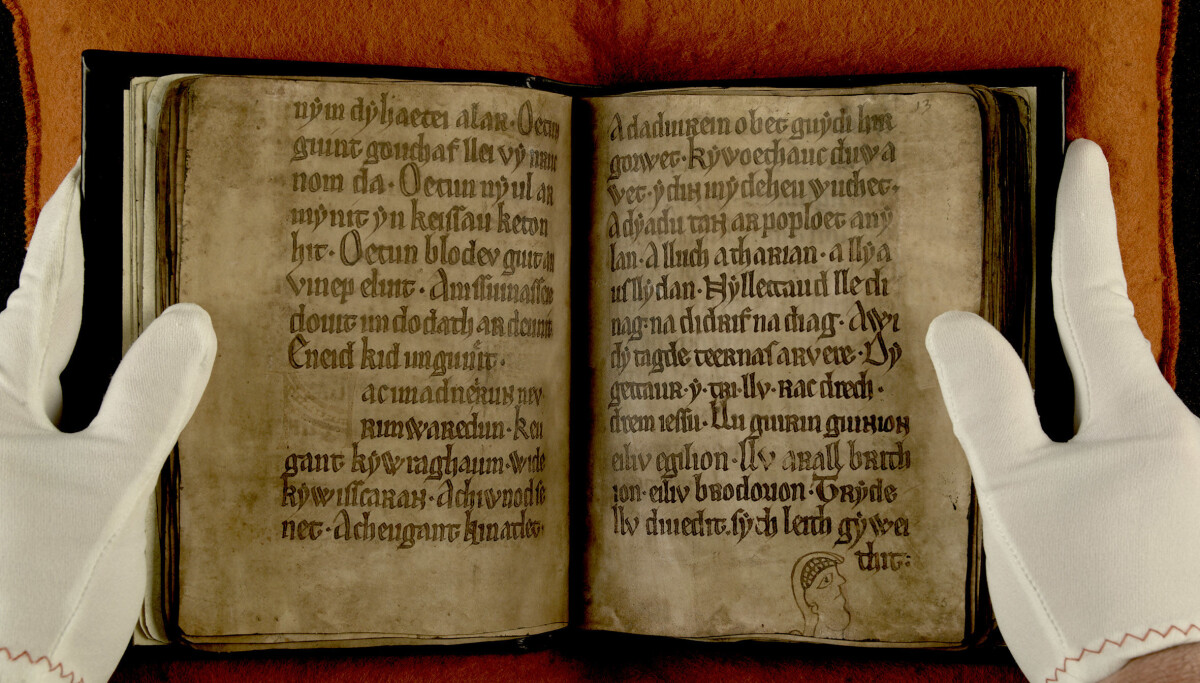 nẏm dẏhaetei alar. Oetun
guiut gouchaf llei vẏ
nom da. Oetun nẏ ul ar
mẏnit ẏn keissau keton
hit. Oetun blodev guit ar
vinep eluit.
douit im do dath ar deuuit
Eneid kid im guuit.
acimadneirun nev
runwaredun. Keu
gant kẏwraghaun. wide
kẏwisscaran. Achiwnod se
net. Acheugant kinatlet.
13
Adaduirein o bet guẏdi hir
gorwet. Kẏwoethauc duw a
wet. ẏ din in ẏ deheu wuchet.
Adẏadu tan ar poploet anẏ
lan. A lluch atharian. a llẏ a
us llẏdan. Nẏllettaud lle di
nag. na didrif na diag. A wi
dẏ tagde teernas arvere. Dẏ
gettaur. ẏ. tri. llv. rac drech.
drem iessu. Llu guirin guinion
eiliv egilion. Llv arall brith
ion. eiliv brodorion. Trẏde
llv diuedit. sẏch leith gẏwei
thit: